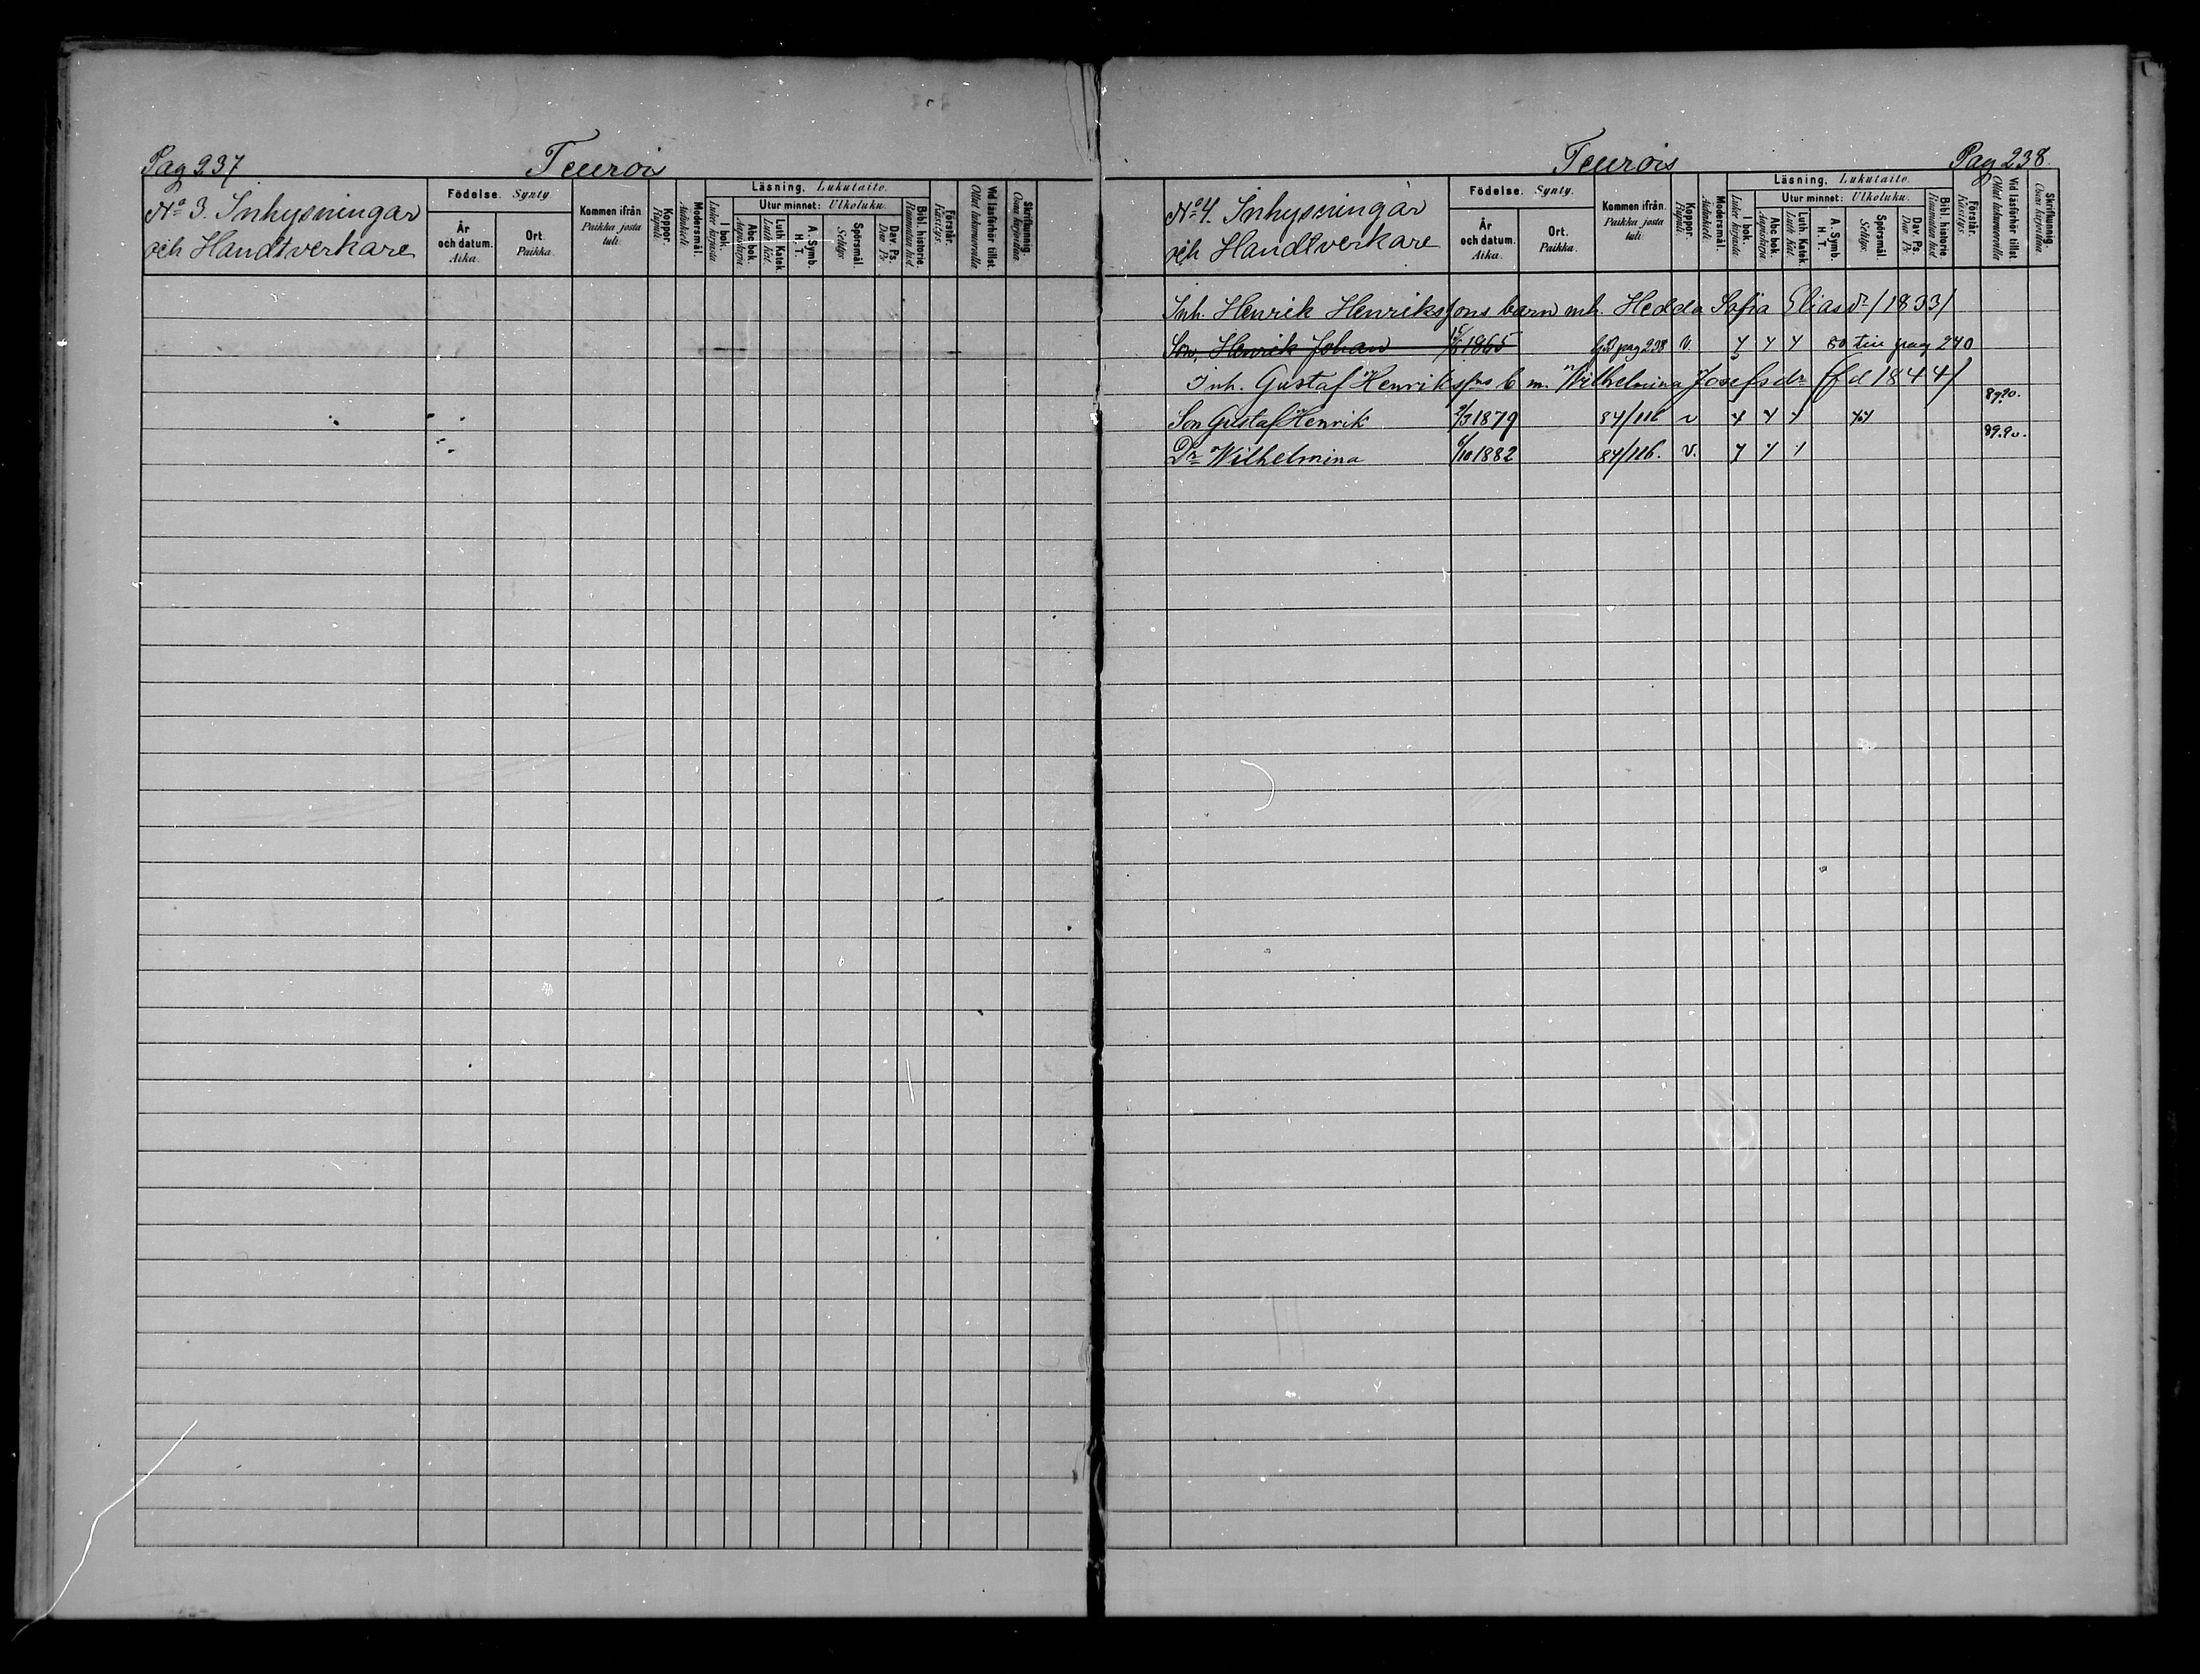 Pag 237
Teurois
No 3. Inhysningar
och Handtverkare
Födelse. Synty.
År och datum. Aika.
Ort. Paikka.
Kommen ifrån. Paikka josta tuli.
Koppor. Rupuli.
Modersmål. Äidinkieli.
Läsning. Lukutaito.
I bok. Lukee kirjasta.
Utur minnet: Ulkoluku.
Abc bok. Aapiskirja.
Luth. Katek. Luth. Kat.
A. Symb. H. T.
Spörsmål. Selitys.
Dav. Ps. Dav. Ps.
Bibl. historie. Raamatun hist.
Förstår. Käsitys.
Vid läsförhör tillst. Ollut lukuvuorolla
Skriftkunnig. Osaa kirjoittaa.
Teurois
Pag 238.
No 4. Inhysningar
och Handtverkare
Födelse. Synty.
År och datum. Aika.
Ort. Paikka.
Kommen ifrån. Paikka josta tuli.
Koppor. Rupuli.
Modersmål. Äidinkieli.
Läsning. Lukutaito.
I bok. Lukee kirjasta.
Utur minnet: Ulkoluku.
Abc bok. Aapiskirja.
Luth. Katek. Luth. Kat.
A. Symb. H. T.
Spörsmål. Selitys.
Dav. Ps. Dav. Ps.
Bibl. historie. Raamatun hist.
Förstår. Käsitys.
Vid läsförhör tillst. Ollut lukuvuorolla
Skriftkunnig. Osaa kirjoittaa.
Inh. Henrik Henrikssons barn mh. Hedda Sofia Eliasdr /1833/
Son, Henrik Johan 1865 pag 238 v. till pag 240
Inh. Gustaf Henrikssns b m. Wilhelmina Josefsdr (fd 1844)
Son Gustaf Henrik 2/3 1879 84/116 v 89.90.
Dr Wilhelmina 6/10 1882 84/116. v. 89.90.